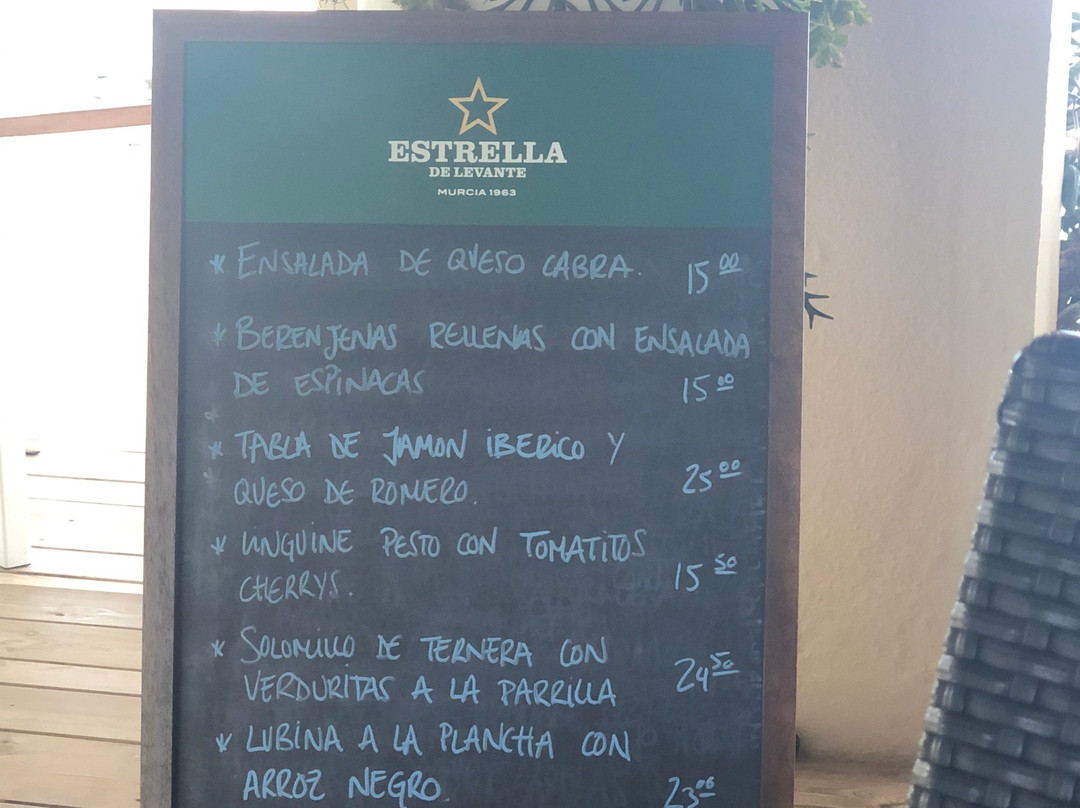 ESTRELLA
DE LEVANTE
MURCIA 1963
* ENSALADA DE QUESO CABRA. 15 00
* BERENJENAS RELLENAS CON ENSALADA
DE ESPINACAS 15 00
* TABLA DE JAMON iBERiCO Y
QUESO DE ROMERO. 25 00
* LINGUINE PESTO CON TOMATiTOS
CHERRYS. 15 50
* SOLOMILLO DE TERNERA CON
VERDURITAS A LA PARRILLA 24 50
* LUBiNA A LA PLANCHA CON
ARROZ NEGRO. 23 00